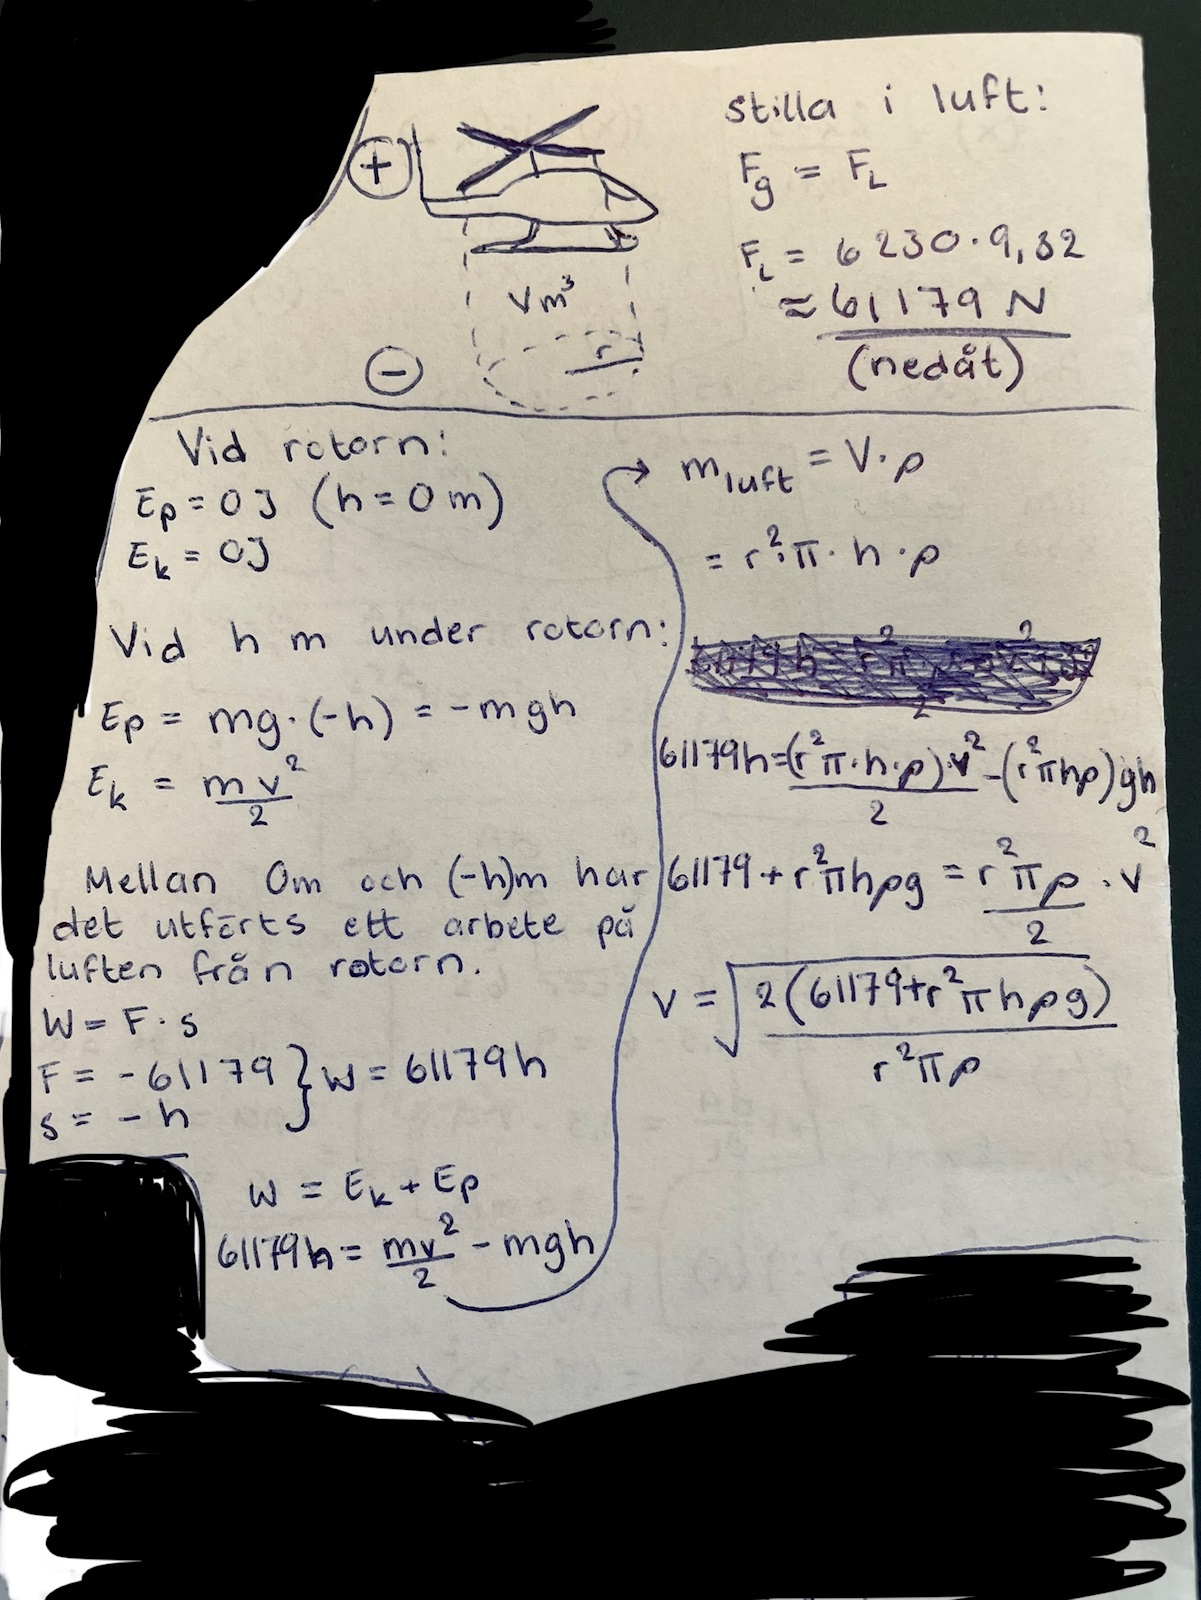 stilla i luft:
F_g = F_L
F_L = 6 230 · 9,82
≈ 61179 N
(nedåt)
+
V m³
r
−
Vid rotorn:
E_p = 0 J (h = 0 m)
E_k = 0 J
Vid h m under rotorn:
E_p = mg · (-h) = -mgh
E_k = mv²/2
Mellan 0m och (-h)m har
det utförts ett arbete på
luften från rotorn.
W = F · s
F = -61179 } W = 61179h
s = -h
W = E_k + E_p
61179h = mv²/2 - mgh
→ m_luft = V · ρ
= r² · π · h · ρ
61179h = (r²π · h · ρ) · v²/2 - (r²πhρ)gh
61179 + r²πhρg = r²πρ/2 · v²
v = √(2(61179 + r²πhρg)/r²πρ)